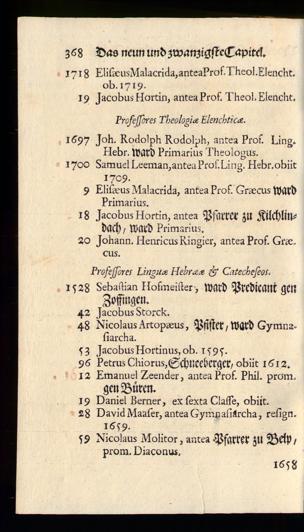 368 Das neun und zwanzigste Capitel.
1718 Elisæus Malacrida, antea Prof. Theol. Elencht.
ob. 1719.
19 Jacobus Hortin, antea Prof. Theol. Elencht.
Professores Theologiæ Elenchticæ.
1697 Joh. Rodolph Rodolph, antea Prof. Ling.
Hebr. ward Primarius Theologus.
1700 Samuel Leeman, antea Prof. Ling. Hebr. obiit
1709.
9 Elisæus Malacrida, antea Prof. Græcus ward
Primarius.
18 Jacobus Hortin, antea Pfarrer zu Kilchlin-
dach, ward Primarius.
20 Johann. Henricus Ringier, antea Prof. Græ-
cus.
Professores Linguæ Hebrææ & Catecheseos.
1528 Sebastian Hofmeister, ward Predicant gen
Zoffingen.
42 Jacobus Storck.
48 Nicolaus Artopæus, Pfister, ward Gymna-
siarcha.
53 Jacobus Hortinus, ob. 1595.
96 Petrus Chiorus, Schneeberger, obiit 1612.
12 Emanuel Zeender, antea Prof. Phil. prom.
gen Büren.
19 Daniel Berner, ex sexta Classe, obiit.
28 David Maaser, antea Gymnasiarcha, resign.
1659.
59 Nicolaus Molitor, antea Pfarrer zu Belp,
prom. Diaconus.
1658